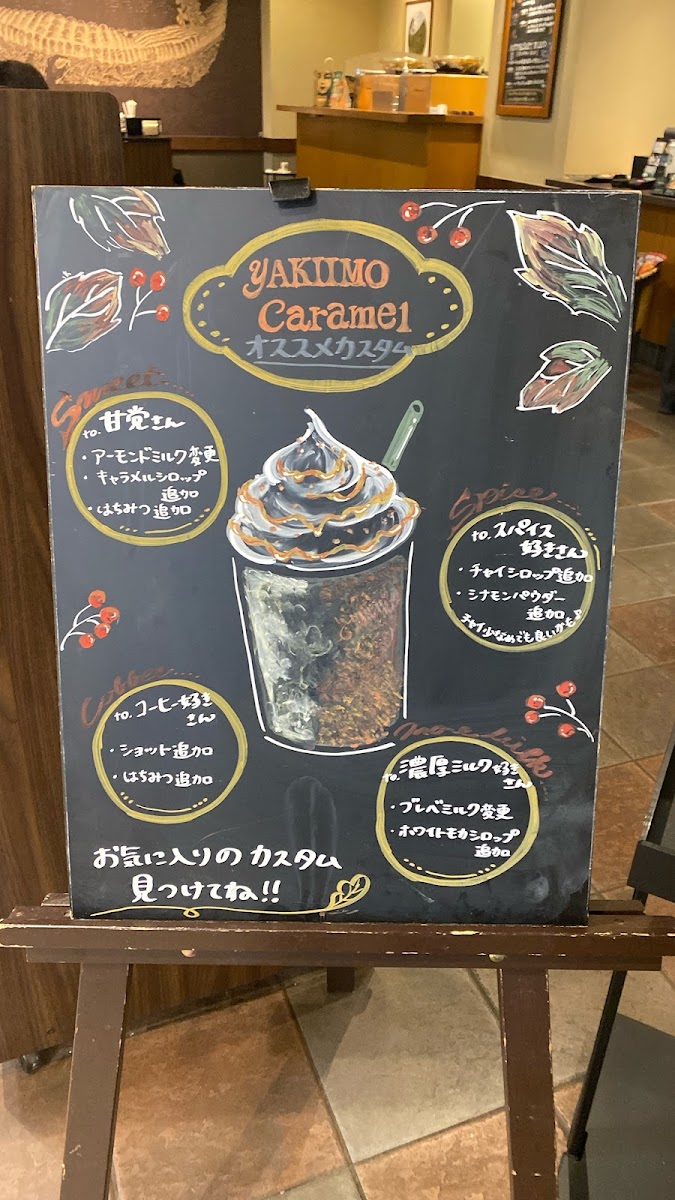 YAKIIMO
Caramel
オススメカスタム
Sweet
to. 甘党さん
・アーモンドミルク変更
・キャラメルシロップ
追加
・はちみつ追加
Spice
to. スパイス
好きさん
・チャイシロップ追加
・シナモンパウダー
追加
チャイ少なめでも良いかも♪
Coffee
to. コーヒー好き
さん
・ショット追加
・はちみつ追加
more milk
to. 濃厚ミルク好き
さん
・ブレベミルク変更
・ホワイトモカシロップ
追加
お気に入りのカスタム
見つけてね!!